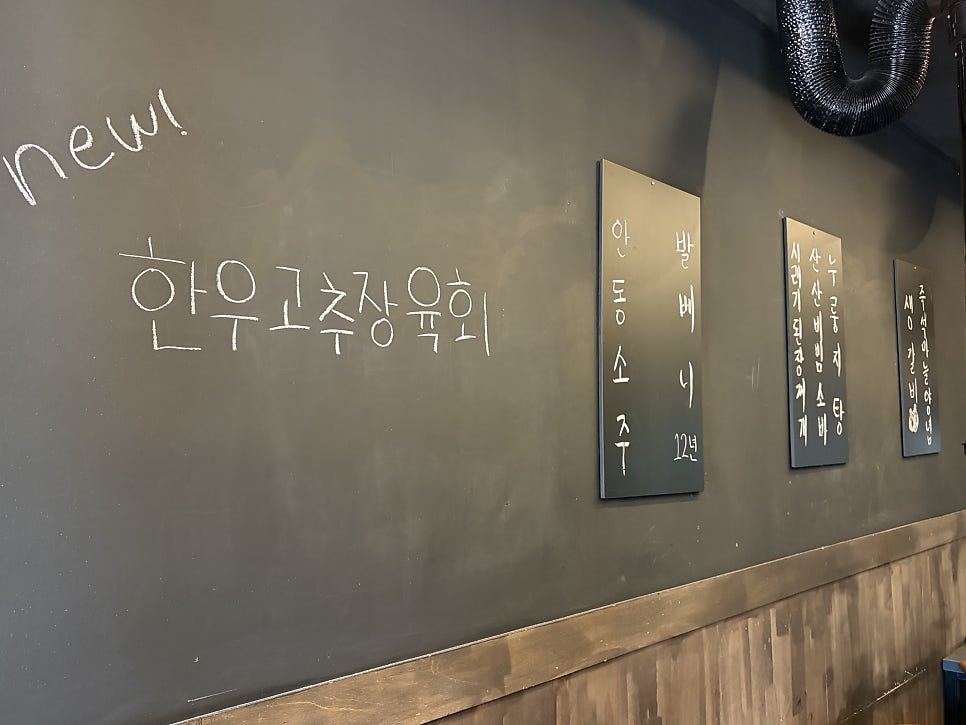 new!
한우고추장육회
발베니 12년
안동소주
누룽지탕
산산비빔소바
시래기된장찌개
즉석마늘양념
생갈비